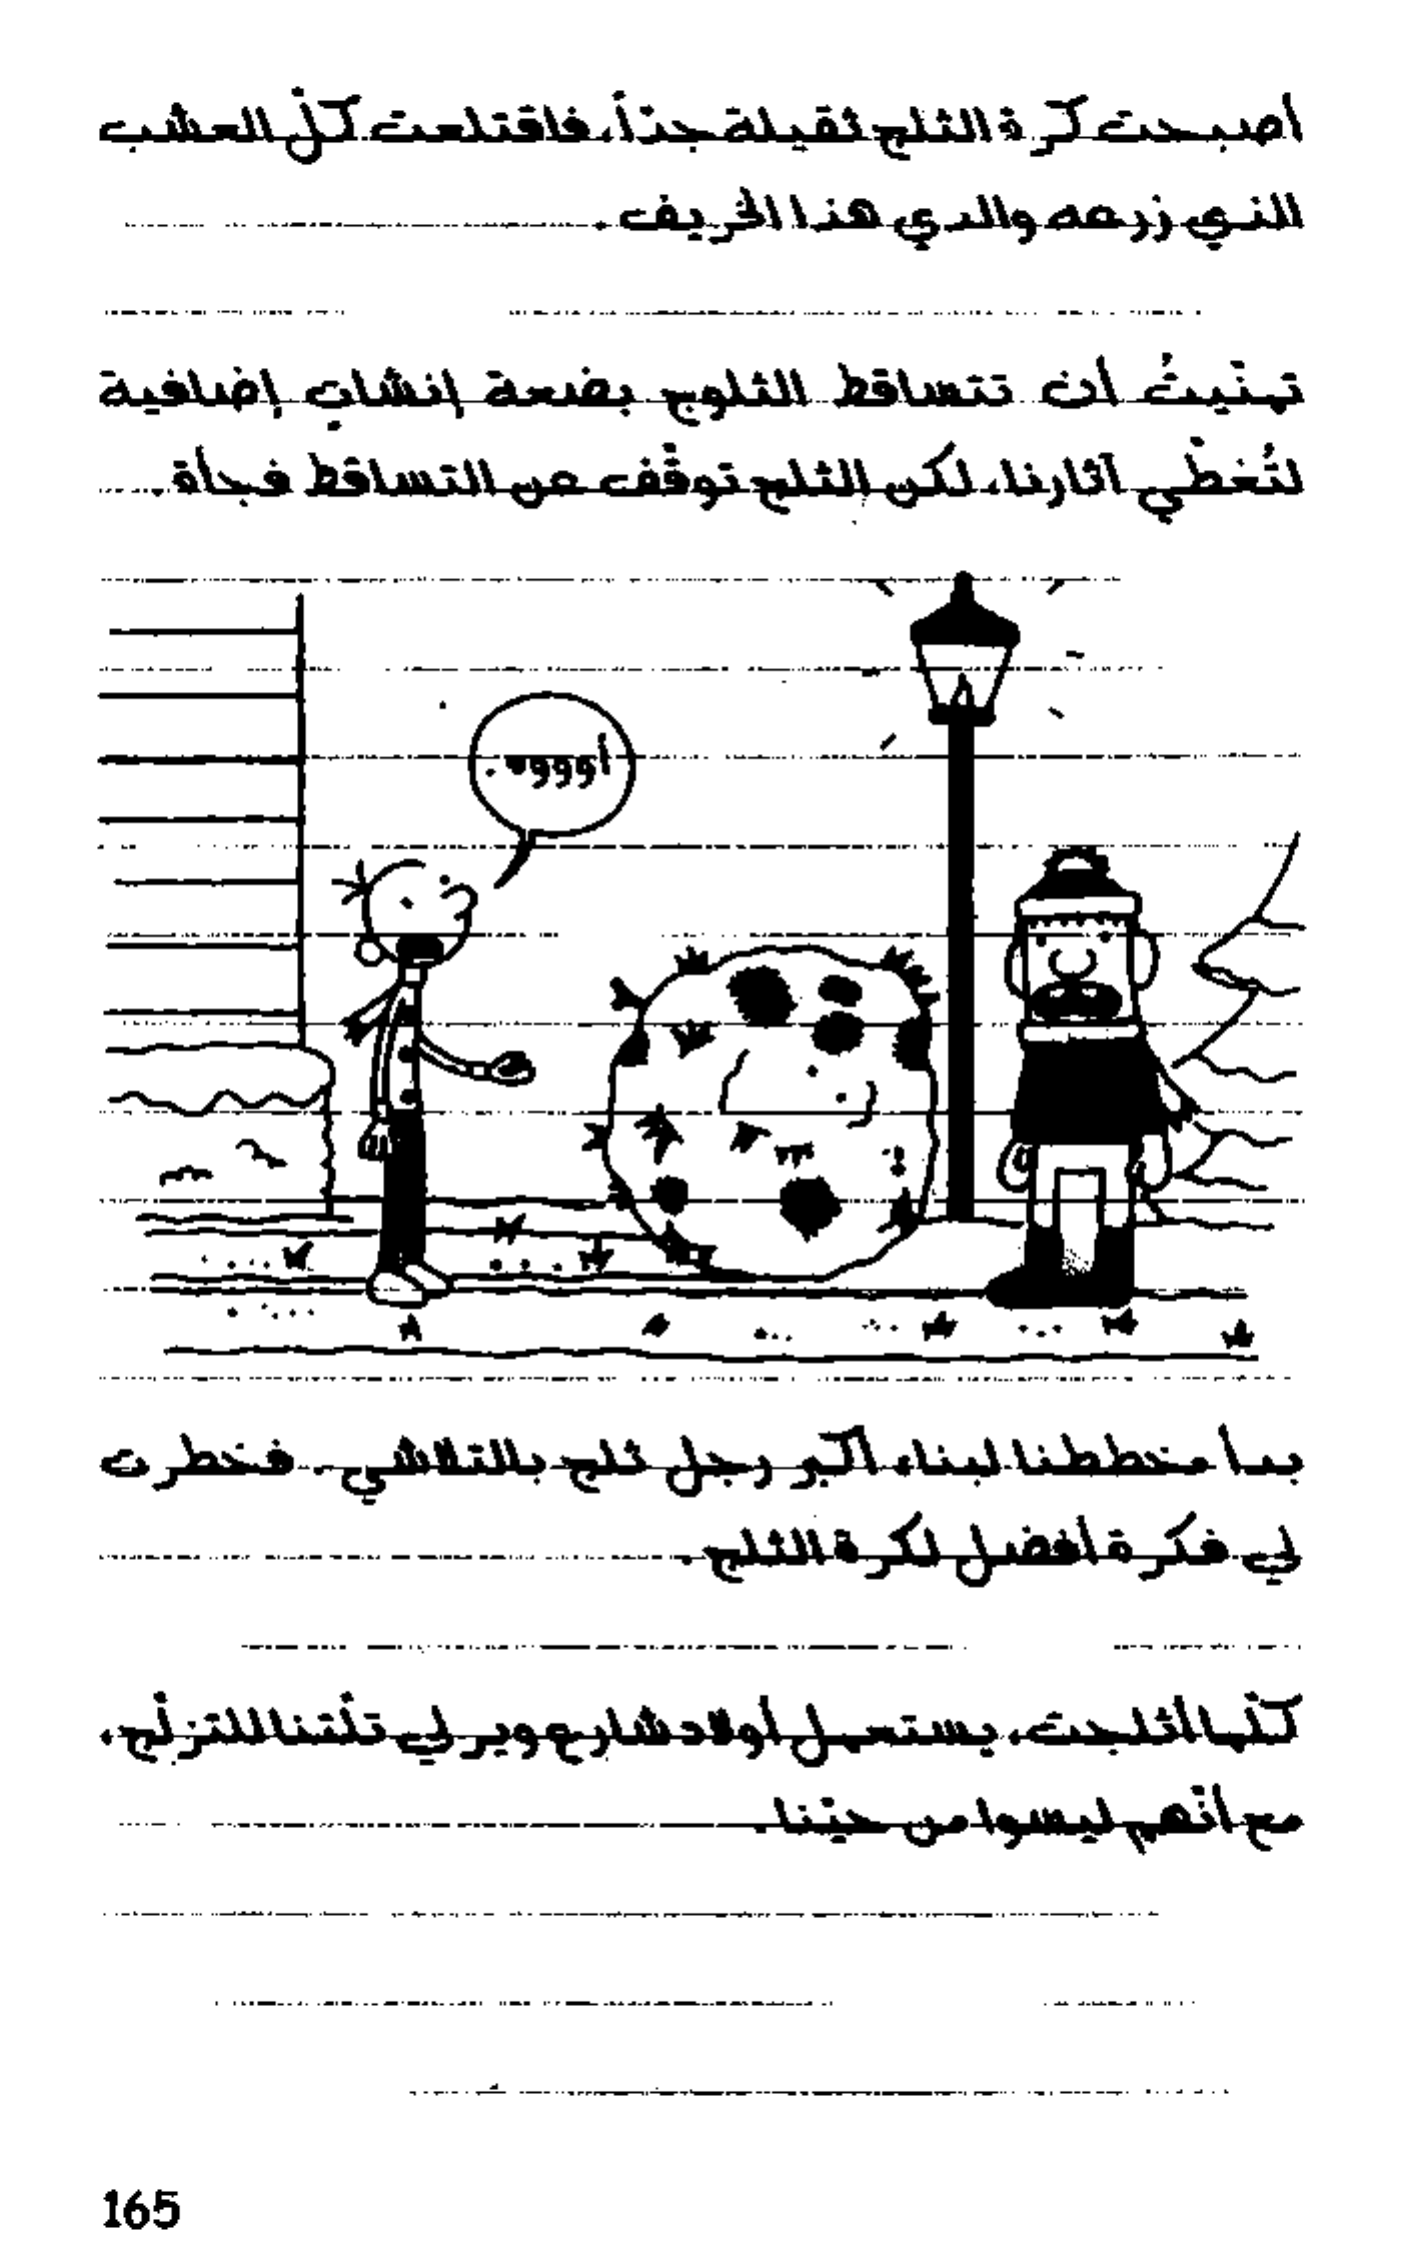 أصبحت كرة الثلج ثقيلة جدّاً، فاقتلعت كلّ العشب
الذي زرعه والدي هذا الخريف.
تمنّيتُ أن تتساقط الثلوج بضعة إنشاتٍ إضافية
لتُغطّي آثارنا، لكن الثلج توقّف عن التساقط فجأة.
أوووه.
بدأ مخططنا لبناء أكبر رجل ثلج بالتلاشي. فخطرت
لي فكرة أفضل لكرة الثلج.
كلّما أثلجت، يستعمل أولاد شارع ويرلي تلّتنا للتزلّج،
مع أنّهم ليسوا من حيّنا.
165